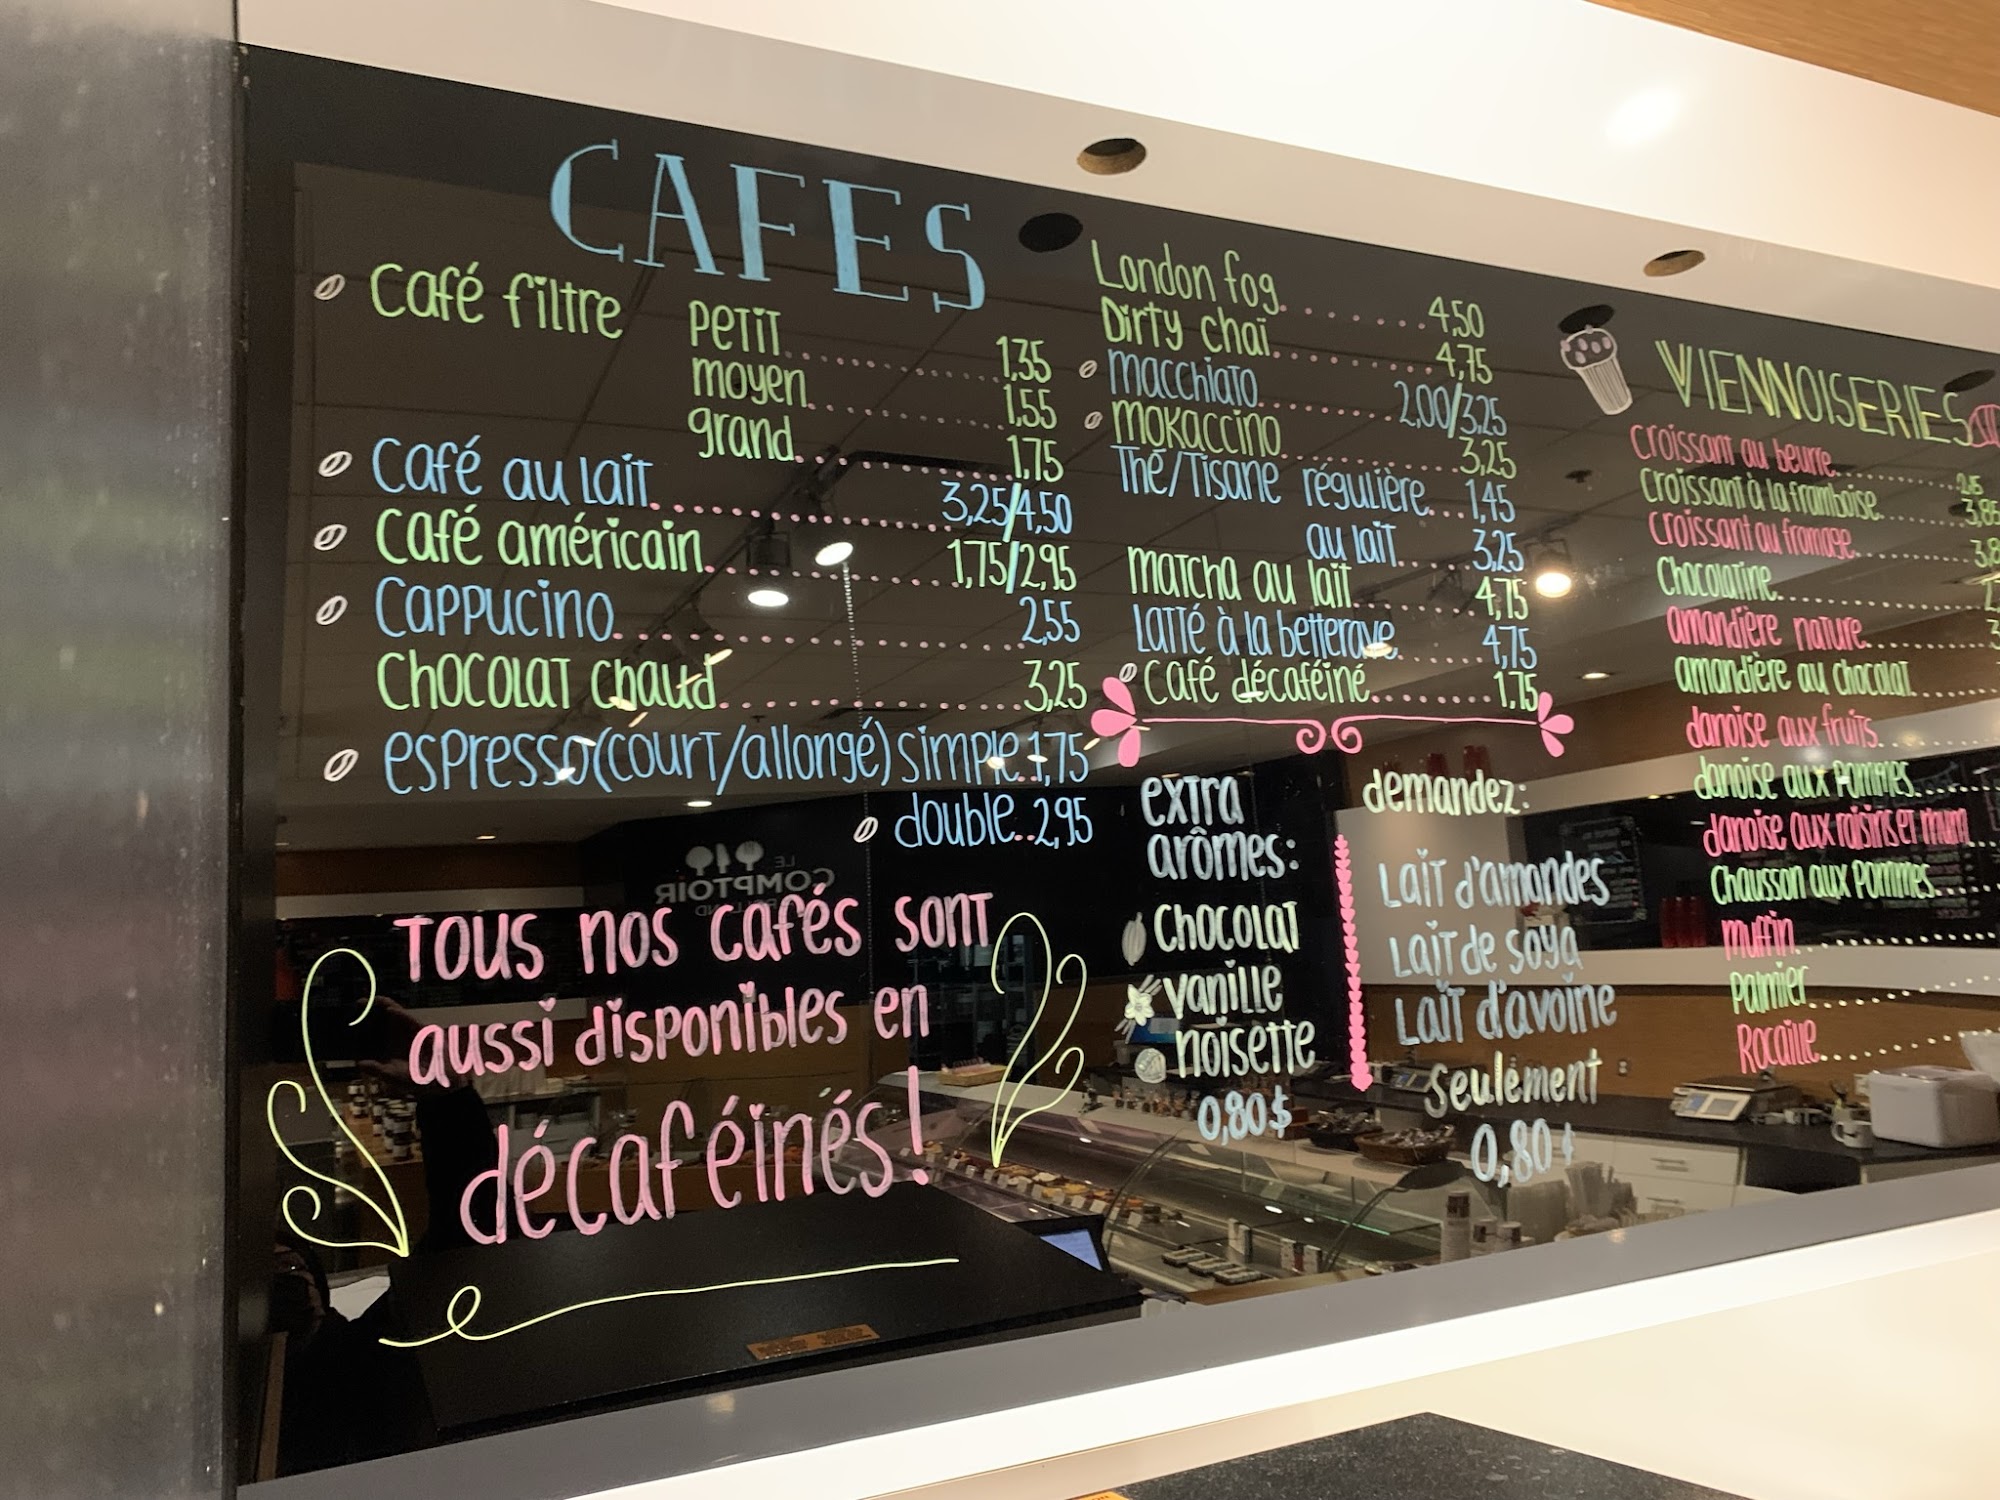 CAFES
Café filtre petit 1,35
moyen 1,55
grand 1,75
Café au lait 3,25/4,50
Café américain 1,75/2,95
Cappucino 2,55
Chocolat chaud 3,25
espresso (court/allongé) simple 1,75
double 2,95
Tous nos cafés sont
aussi disponibles en
décaféinés!
London fog 4,50
Dirty chaï 4,75
macchiato 2,00/3,25
mokaccino 3,25
Thé/Tisane régulière 1,45
au lait 3,25
matcha au lait 4,75
Latté à la betterave 4,75
café décaféiné 1,75
extra
arômes:
chocolat
vanille
noisette
0,80$
demandez:
Lait d'amandes
Lait de soya
Lait d'avoine
seulement
0,80
VIENNOISERIES
croissant au beurre
croissant à la framboise 3,85
croissant au fromage
chocolatine
amandière nature
amandière au chocolat
danoise aux fruits
danoise aux pommes
danoise aux raisins et rhum
chausson aux pommes
muffin
palmier
Rocaille
LE
COMPTOIR